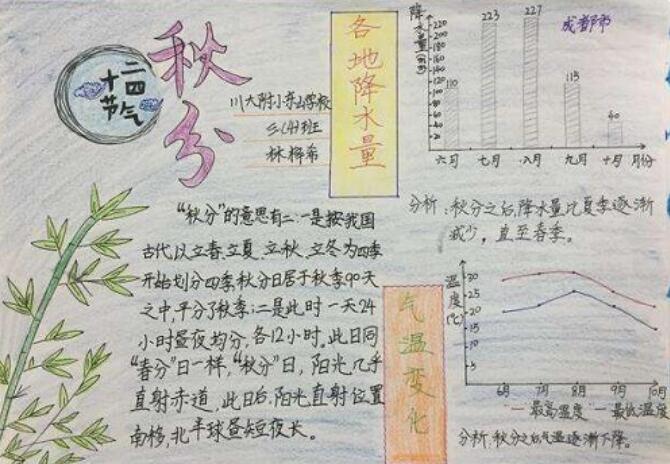 秋分
二十四节气
川大附小分山学校
林梓希
各地降水量
降水量(mm)
220
200
180
160
140
120
110
223
227
115
40
成都市
六月 七月 八月 九月 十月 月份
分析:秋分之后,降水量比夏季逐渐
减少,直至春季。
"秋分"的意思有二:一是按我国
古代以立春、立夏、立秋、立冬为四季
开始划分四季,秋分日居于秋季90天
之中,平分了秋季;二是此时一天24
小时昼夜均分,各12小时,此日同
"春分"日一样,"秋分"日,阳光几乎
直射赤道,此日后,阳光直射位置
南移,北半球昼短夜长。
气温变化
温度(℃)
30
25
20
15
5
6月 7月 8月 9月 10月
一最高温度 一最低温度
分析:秋分之后气温逐渐下降。